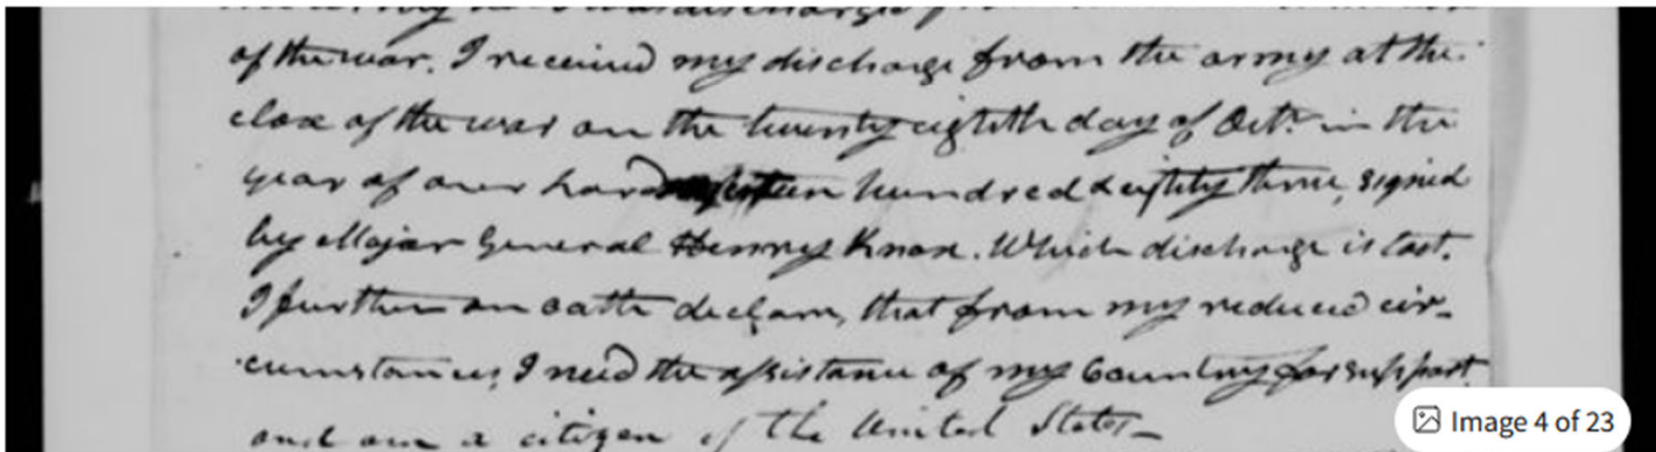 of the war. I received my discharge from the army at the
close of the war on the twenty eighth day of Octr. in the
year of our Lord hundred & eighty three, signed
by Major General Henry Knox. Which discharge is lost.
I further on oath declare, that from my reduced cir-
cumstances, I need the assistance of my Country for support
and am a citizen of the United States—
Image 4 of 23